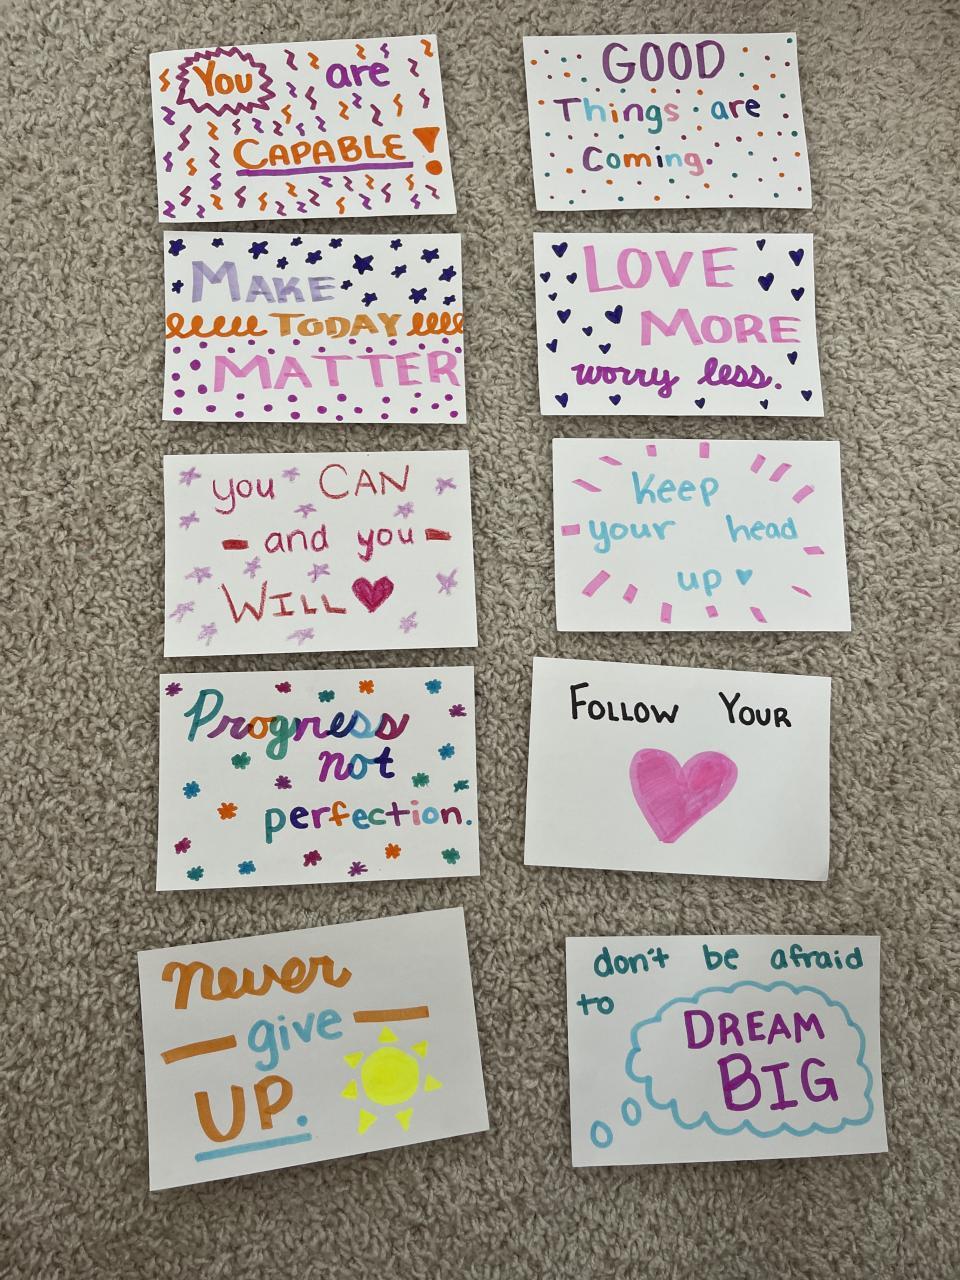 You are
CAPABLE!
GOOD
Things are
Coming.
MAKE
TODAY
MATTER
LOVE
MORE
worry less.
you CAN
- and you -
WILL
keep
your head
up
Progress
not
perfection.
FOLLOW YOUR
never
- give -
UP.
don't be afraid
to
DREAM
BIG